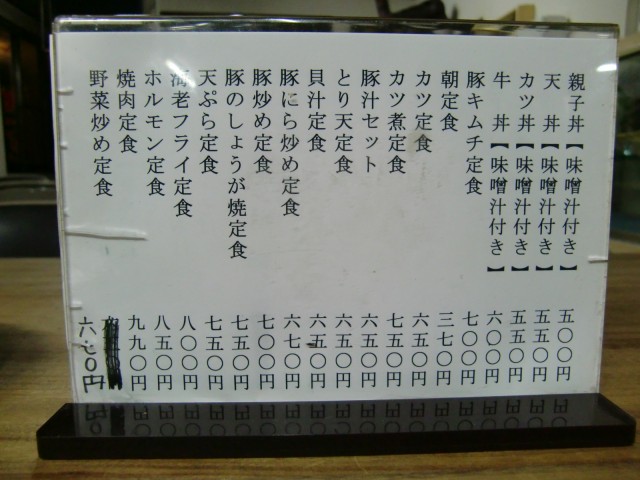 親子丼【味噌汁付き】 五〇〇円
天 丼【味噌汁付き】 五五〇円
カツ丼【味噌汁付き】 五五〇円
牛 丼【味噌汁付き】 六〇〇円
豚キムチ定食 七〇〇円
朝定食 三七〇円
カツ定食 六五〇円
カツ煮定食 七五〇円
豚汁セット 六五〇円
とり天定食 六五〇円
貝汁定食 六五〇円
豚にら炒め定食 六七〇円
豚炒め定食 七〇〇円
豚のしょうが焼定食 七五〇円
天ぷら定食 七五〇円
海老フライ定食 八〇〇円
ホルモン定食 八五〇円
焼肉定食 九九〇円
野菜炒め定食